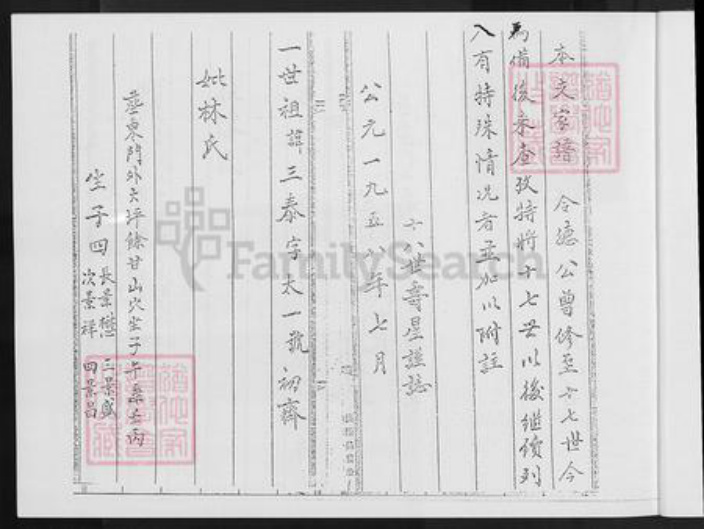 本支家譜 令德公曾修至十七世今
為備後来查攷特將十七世以後继續列
入有特殊情况者並加以附註
十八世壽星謹誌
公元一九五八年七月
一世祖諱三泰字太一號初齋
妣林氏
葬東門外大坪餘甘山穴坐子午兼壬丙
生子四
長景懋 三景盛
次景祥 四景昌
FamilySearch